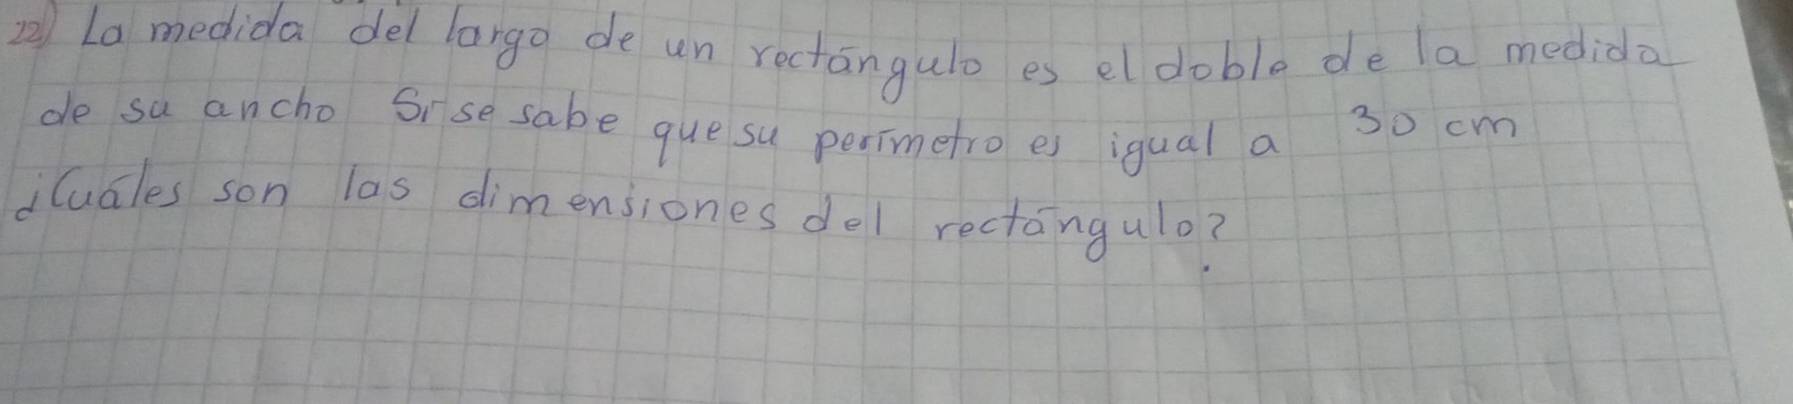 22) La medida del largo de un rectángulo es el doble de la medida
de su ancho Si se sabe que su perímetro es igual a 30 cm
¿Cuáles son las dimensiones del rectángulo?